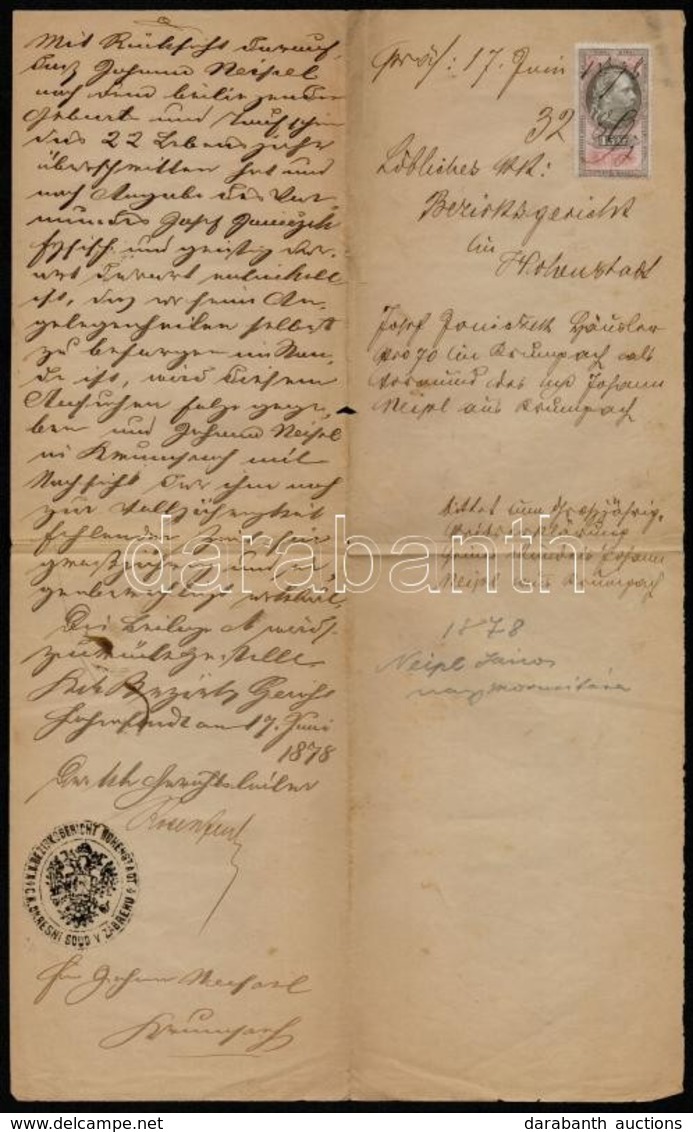 Mit Rücksicht darauf,
daß Johann Neißel
nach dem beiliegenden
Geburts und Taufschein
das 22 Lebensjahr
überschritten hat und
nach Angabe des Vor-
mundes Josef
fysisch und geistig der-
art entwickelt
ist, daß er seine An-
gelegenheiten selbst
zu besorgen im Stan-
de ist, wird diesem
Ansuchen folge gege-
ben und Johann Neißel
in Krumpach mit
Nachsicht der ihm noch
zur Volljährigkeit
fehlenden Zeit für
großjährig und ei-
genberechtigt erklärt.
Die Beilage wird
zurückgestellt.
K.k. Bezirks Gericht
Hohenstadt am 17. Juni
1878
Der k.k. Gerichtsleiter
K.K. BEZIRKSGERICHT HOHENSTADT
C.K. OKRESNI SOUD V ZÁBŘEHU
Für Johann
Krumpach
präs: 17. Juni
32
Löbliches kk:
Bezirksgericht
in
Hohenstadt
Josef Häusler
Nro 70 in Krumpach als
Vormund des Johann
Neipl aus Krumpach
bittet um Großjährig-
keitserklärung
seines Mündels Johann
Neipl aus Krumpach
1878
Neipl János
darabanth
darabanth auctions